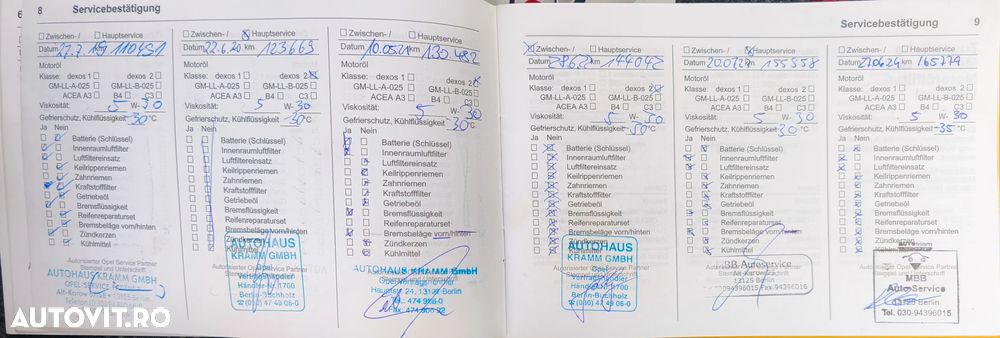 8 Servicebestätigung
Zwischen- / Hauptservice
Datum 22.7.19 km 110491
Motoröl
Klasse: dexos 1 dexos 2
GM-LL-A-025 GM-LL-B-025
ACEA A3 B4 C3
Viskosität: 5 W- 30
Gefrierschutz, Kühlflüssigkeit -30 °C
Ja Nein
Batterie (Schlüssel)
Innenraumluftfilter
Luftfiltereinsatz
Keilrippenriemen
Zahnriemen
Kraftstofffilter
Getriebeöl
Bremsflüssigkeit
Reifenreparaturset
Bremsbeläge vorn/hinten
Zündkerzen
Kühlmittel
Autorisierter Opel Service Partner
Stempel und Unterschrift
AUTOHAUS KRAMM GMBH
Zwischen- / Hauptservice
Datum 22.6.20 km 123669
Motoröl
Klasse: dexos 1 dexos 2
GM-LL-A-025 GM-LL-B-025
ACEA A3 B4 C3
Viskosität: 5 W- 30
Gefrierschutz, Kühlflüssigkeit -30 °C
Ja Nein
Batterie (Schlüssel)
Innenraumluftfilter
Luftfiltereinsatz
Keilrippenriemen
Zahnriemen
Kraftstofffilter
Getriebeöl
Bremsflüssigkeit
Reifenreparaturset
Bremsbeläge vorn/hinten
Zündkerzen
Kühlmittel
AUTOHAUS
KRAMM GMBH
Opel
Vertragshändler
Händler-Nr. 1700
Berlin-Buchholz
(030) 47 49 06-0
Zwischen- / Hauptservice
Datum 10.05.21 km 130.482
Motoröl
Klasse: dexos 1 dexos 2
GM-LL-A-025 GM-LL-B-025
ACEA A3 B4 C3
Viskosität: 5 W- 30
Gefrierschutz, Kühlflüssigkeit -30 °C
Ja Nein
Batterie (Schlüssel)
Innenraumluftfilter
Luftfiltereinsatz
Keilrippenriemen
Zahnriemen
Kraftstofffilter
Getriebeöl
Bremsflüssigkeit
Reifenreparaturset
Bremsbeläge vorn/hinten
Zündkerzen
Kühlmittel
AUTOHAUS KRAMM GmbH
Servicebestätigung 9
Zwischen- / Hauptservice
Datum 28.6.22 km 144042
Motoröl
Klasse: dexos 1 dexos 2
GM-LL-A-025 GM-LL-B-025
ACEA A3 B4 C3
Viskosität: 5 W- 30
Gefrierschutz, Kühlflüssigkeit °C
Ja Nein
Batterie (Schlüssel)
Innenraumluftfilter
Luftfiltereinsatz
Keilrippenriemen
Zahnriemen
Kraftstofffilter
Getriebeöl
Bremsflüssigkeit
Reifenreparaturset
Bremsbeläge vorn/hinten
Zündkerzen
Kühlmittel
AUTOHAUS
KRAMM GMBH
Opel
Vertragshändler
Berlin-Buchholz
(030) 47 49 06-0
Zwischen- / Hauptservice
Datum km 155558
Motoröl
Klasse: dexos 1 dexos 2
GM-LL-A-025 GM-LL-B-025
ACEA A3 B4 C3
Viskosität: 5 W- 30
Gefrierschutz, Kühlflüssigkeit -30 °C
Ja Nein
Batterie (Schlüssel)
Innenraumluftfilter
Luftfiltereinsatz
Keilrippenriemen
Zahnriemen
Kraftstofffilter
Getriebeöl
Bremsflüssigkeit
Reifenreparaturset
Bremsbeläge vorn/hinten
Zündkerzen
Kühlmittel
Autorisierter Opel Service Partner
BB Autoservice
Alt-Karow
13125 Berlin
Zwischen- / Hauptservice
Datum 27.06.24 km 165779
Motoröl
Klasse: dexos 1 dexos 2
GM-LL-A-025 GM-LL-B-025
ACEA A3 B4 C3
Viskosität: 5 W- 30
Gefrierschutz, Kühlflüssigkeit -35 °C
Ja Nein
Batterie (Schlüssel)
Innenraumluftfilter
Luftfiltereinsatz
Keilrippenriemen
Zahnriemen
Kraftstofffilter
Getriebeöl
Bremsflüssigkeit
Reifenreparaturset
Bremsbeläge vorn/hinten
Zündkerzen
Kühlmittel
MBB
Auto-Service
13125 Berlin
Tel. 030-94396015
AUTOVIT.RO